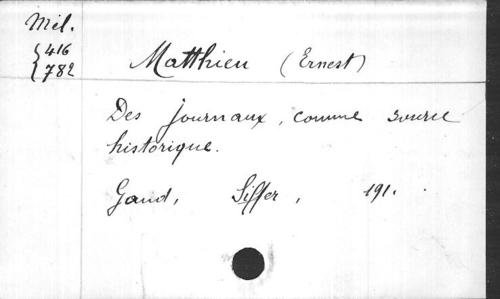 Mél.
{ 416
{ 782
Matthieu (Ernest)
Des journaux, comme source
historique.
Gand, Siffer, 191.